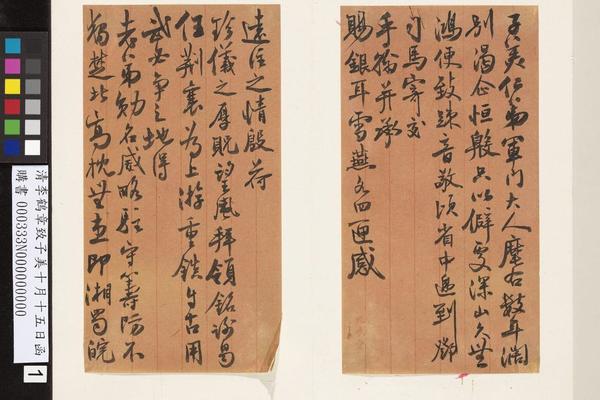 子美仁弟軍門大人麾右數年闊
別渴企恒殷只以僻處深山久無
鴻便致疎音敬頃省中遞到鄧
司馬寄交
手翰并承
賜銀耳雪燕各四匣感
遠注之情殷荷
珍儀之厚貺望風拜領銘謝曷
任荊襄為上游重鎮自古用
武必爭之地得
老弟勳名威略駐守籌防不
獨楚北高枕無虞即湘蜀皖
清李鶴章致子美十月十五日函
購書 000333N000000000
1